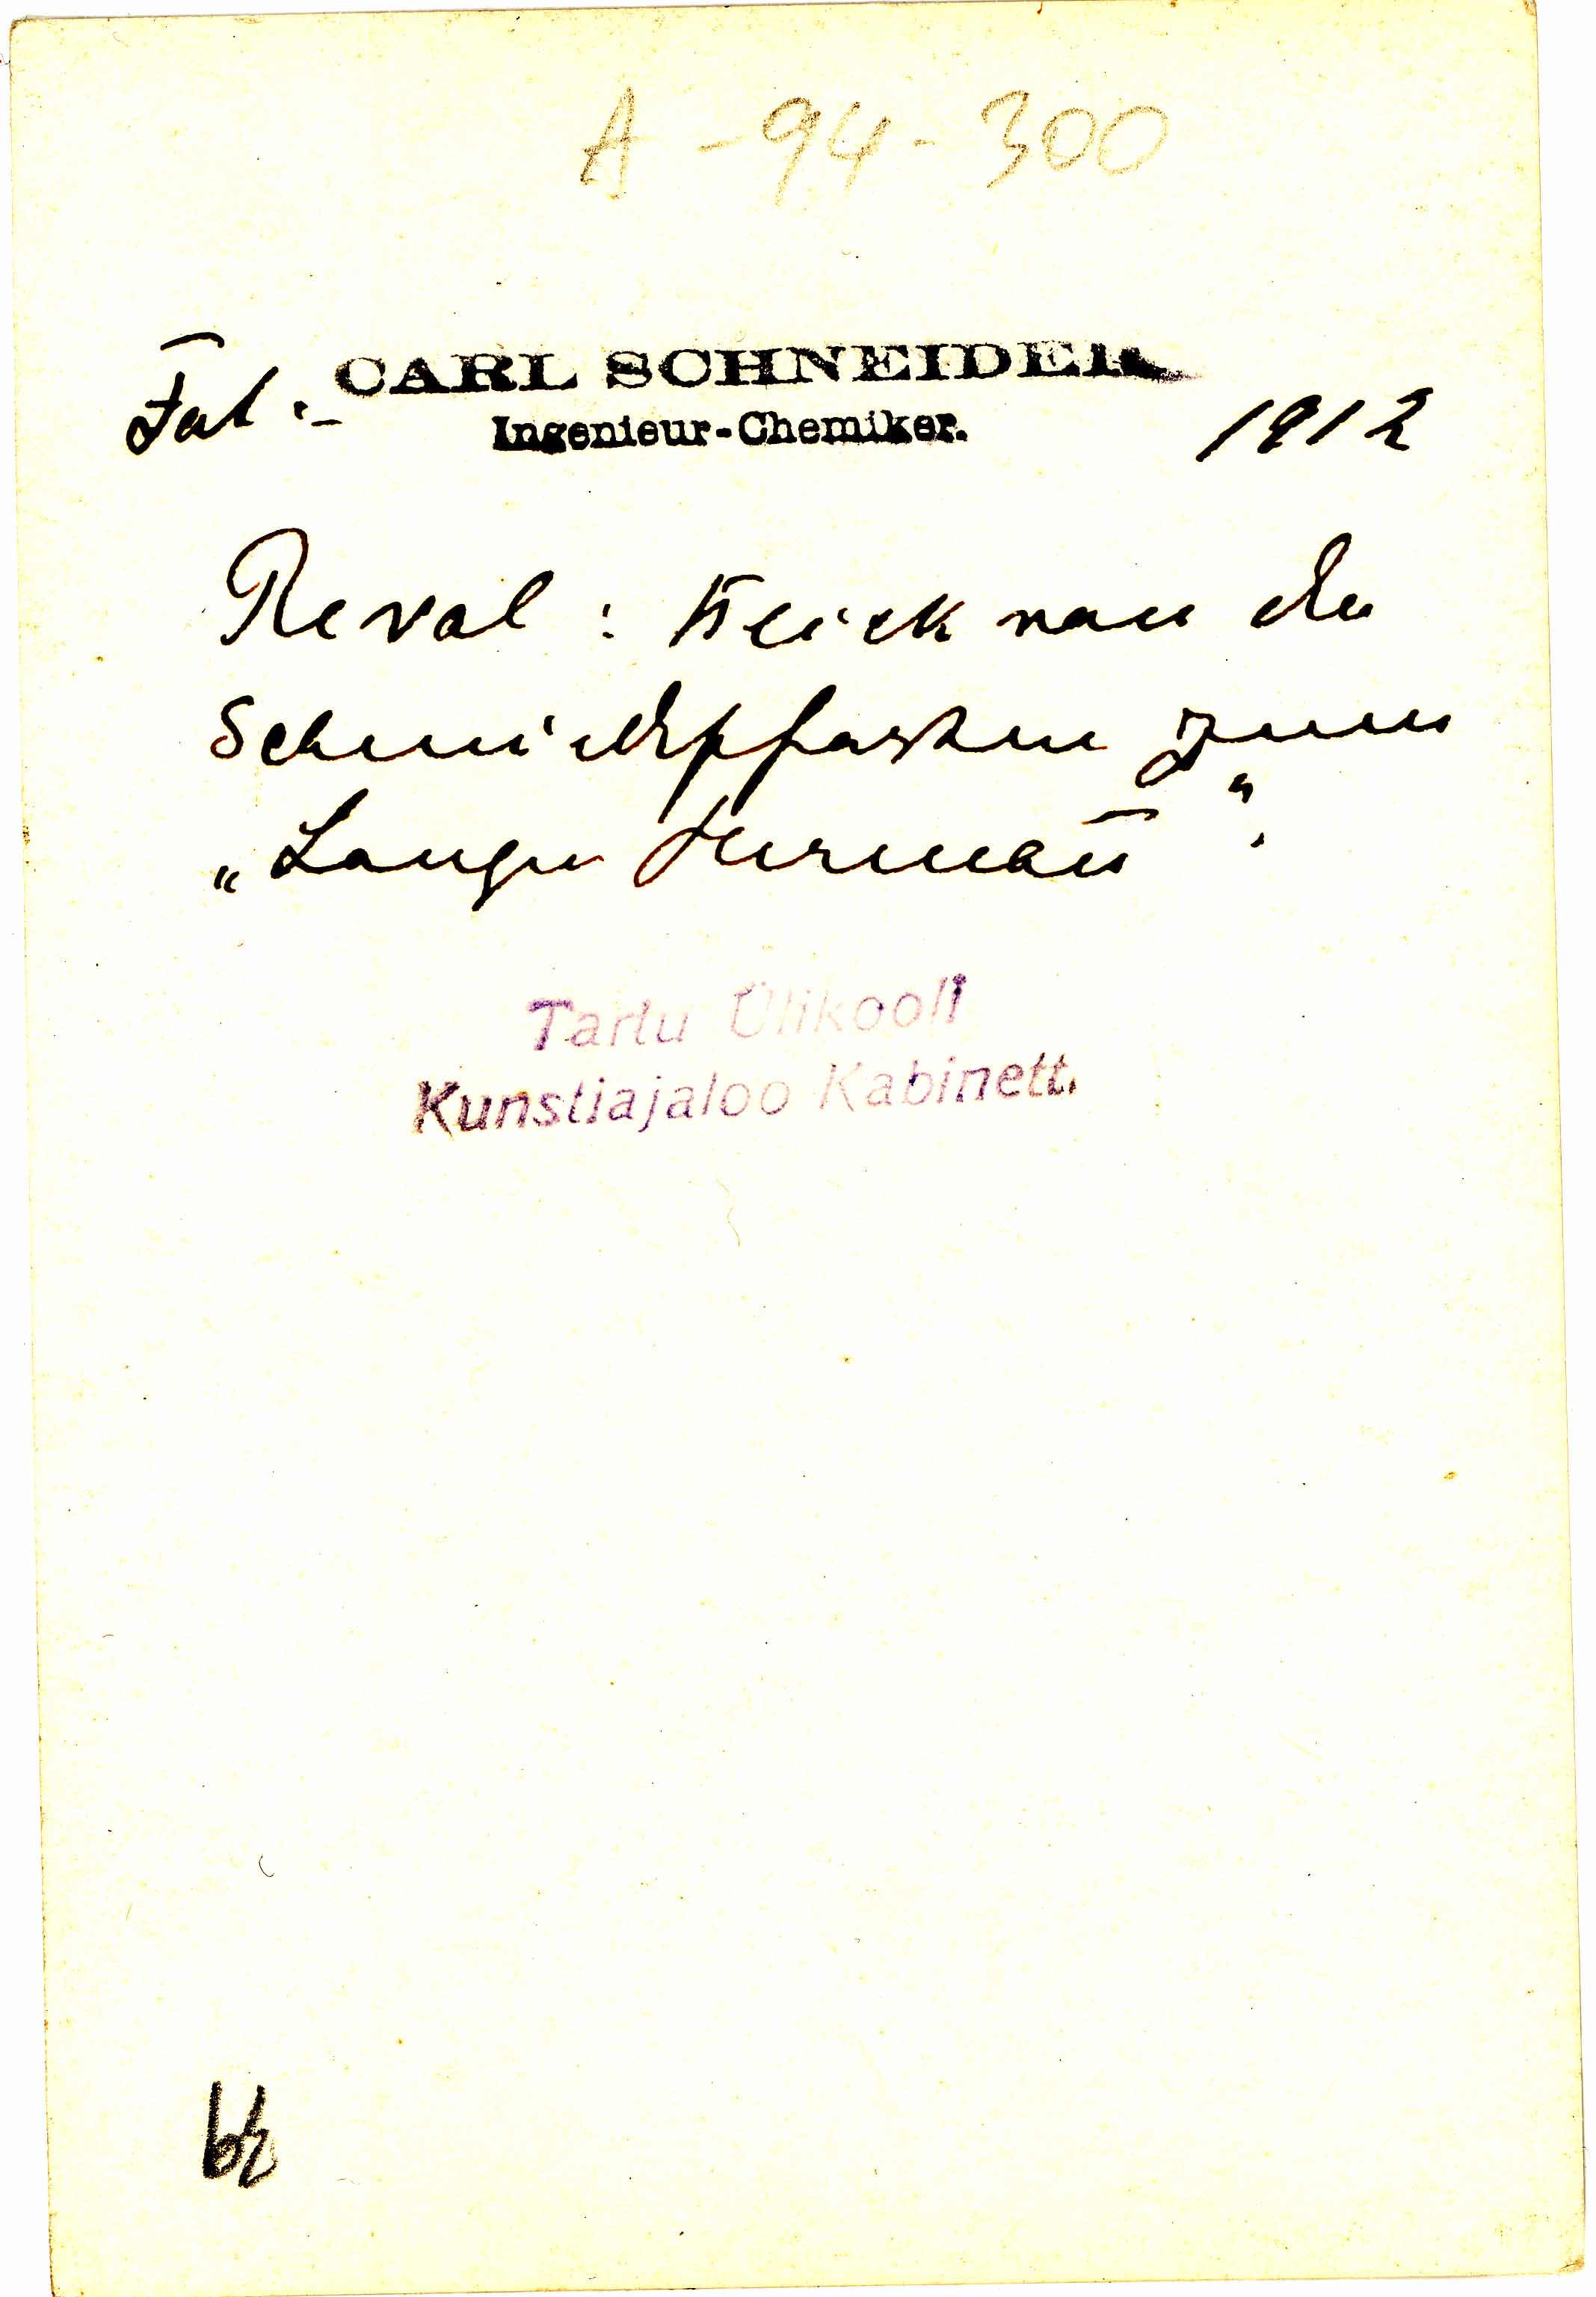 A - 94 - 300
Fot :- CARL SCHNEIDER 1912
Ingenieur-Chemiker.
Reval : Blick von der
Schmiedepforte zum
„Langen Hermañ“.
Tartu Ülikooli
Kunstiajaloo Kabinett.